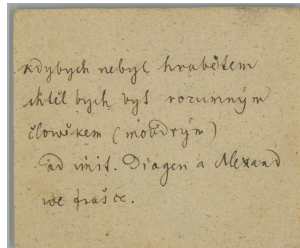 kdybych nebyl hrabětem
chtěl bych být rozumným
člowěkem (moudrým)
ad imit. Diogen a Alexand
we frašce.